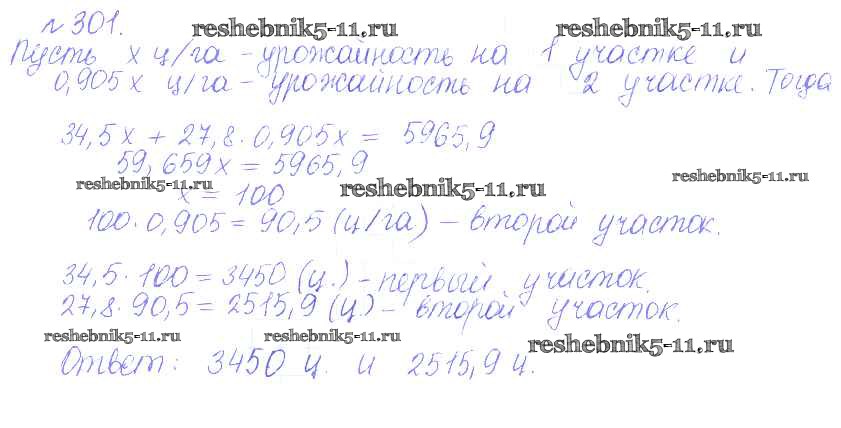 № 301. reshebnik5-11.ru reshebnik5-11.ru
Пусть x ц/га - урожайность на 1 участке и
0,905x ц/га - урожайность на 2 участке. Тогда
34,5x + 27,8·0,905x = 5965,9
59,659x = 5965,9
reshebnik5-11.ru reshebnik5-11.ru reshebnik5-11.ru
x = 100
100·0,905 = 90,5 (ц/га) - второй участок.
34,5·100 = 3450 (ц.) - первый участок.
27,8·90,5 = 2515,9 (ц.) - второй участок.
reshebnik5-11.ru reshebnik5-11.ru reshebnik5-11.ru
Ответ: 3450 ц. и 2515,9 ц.